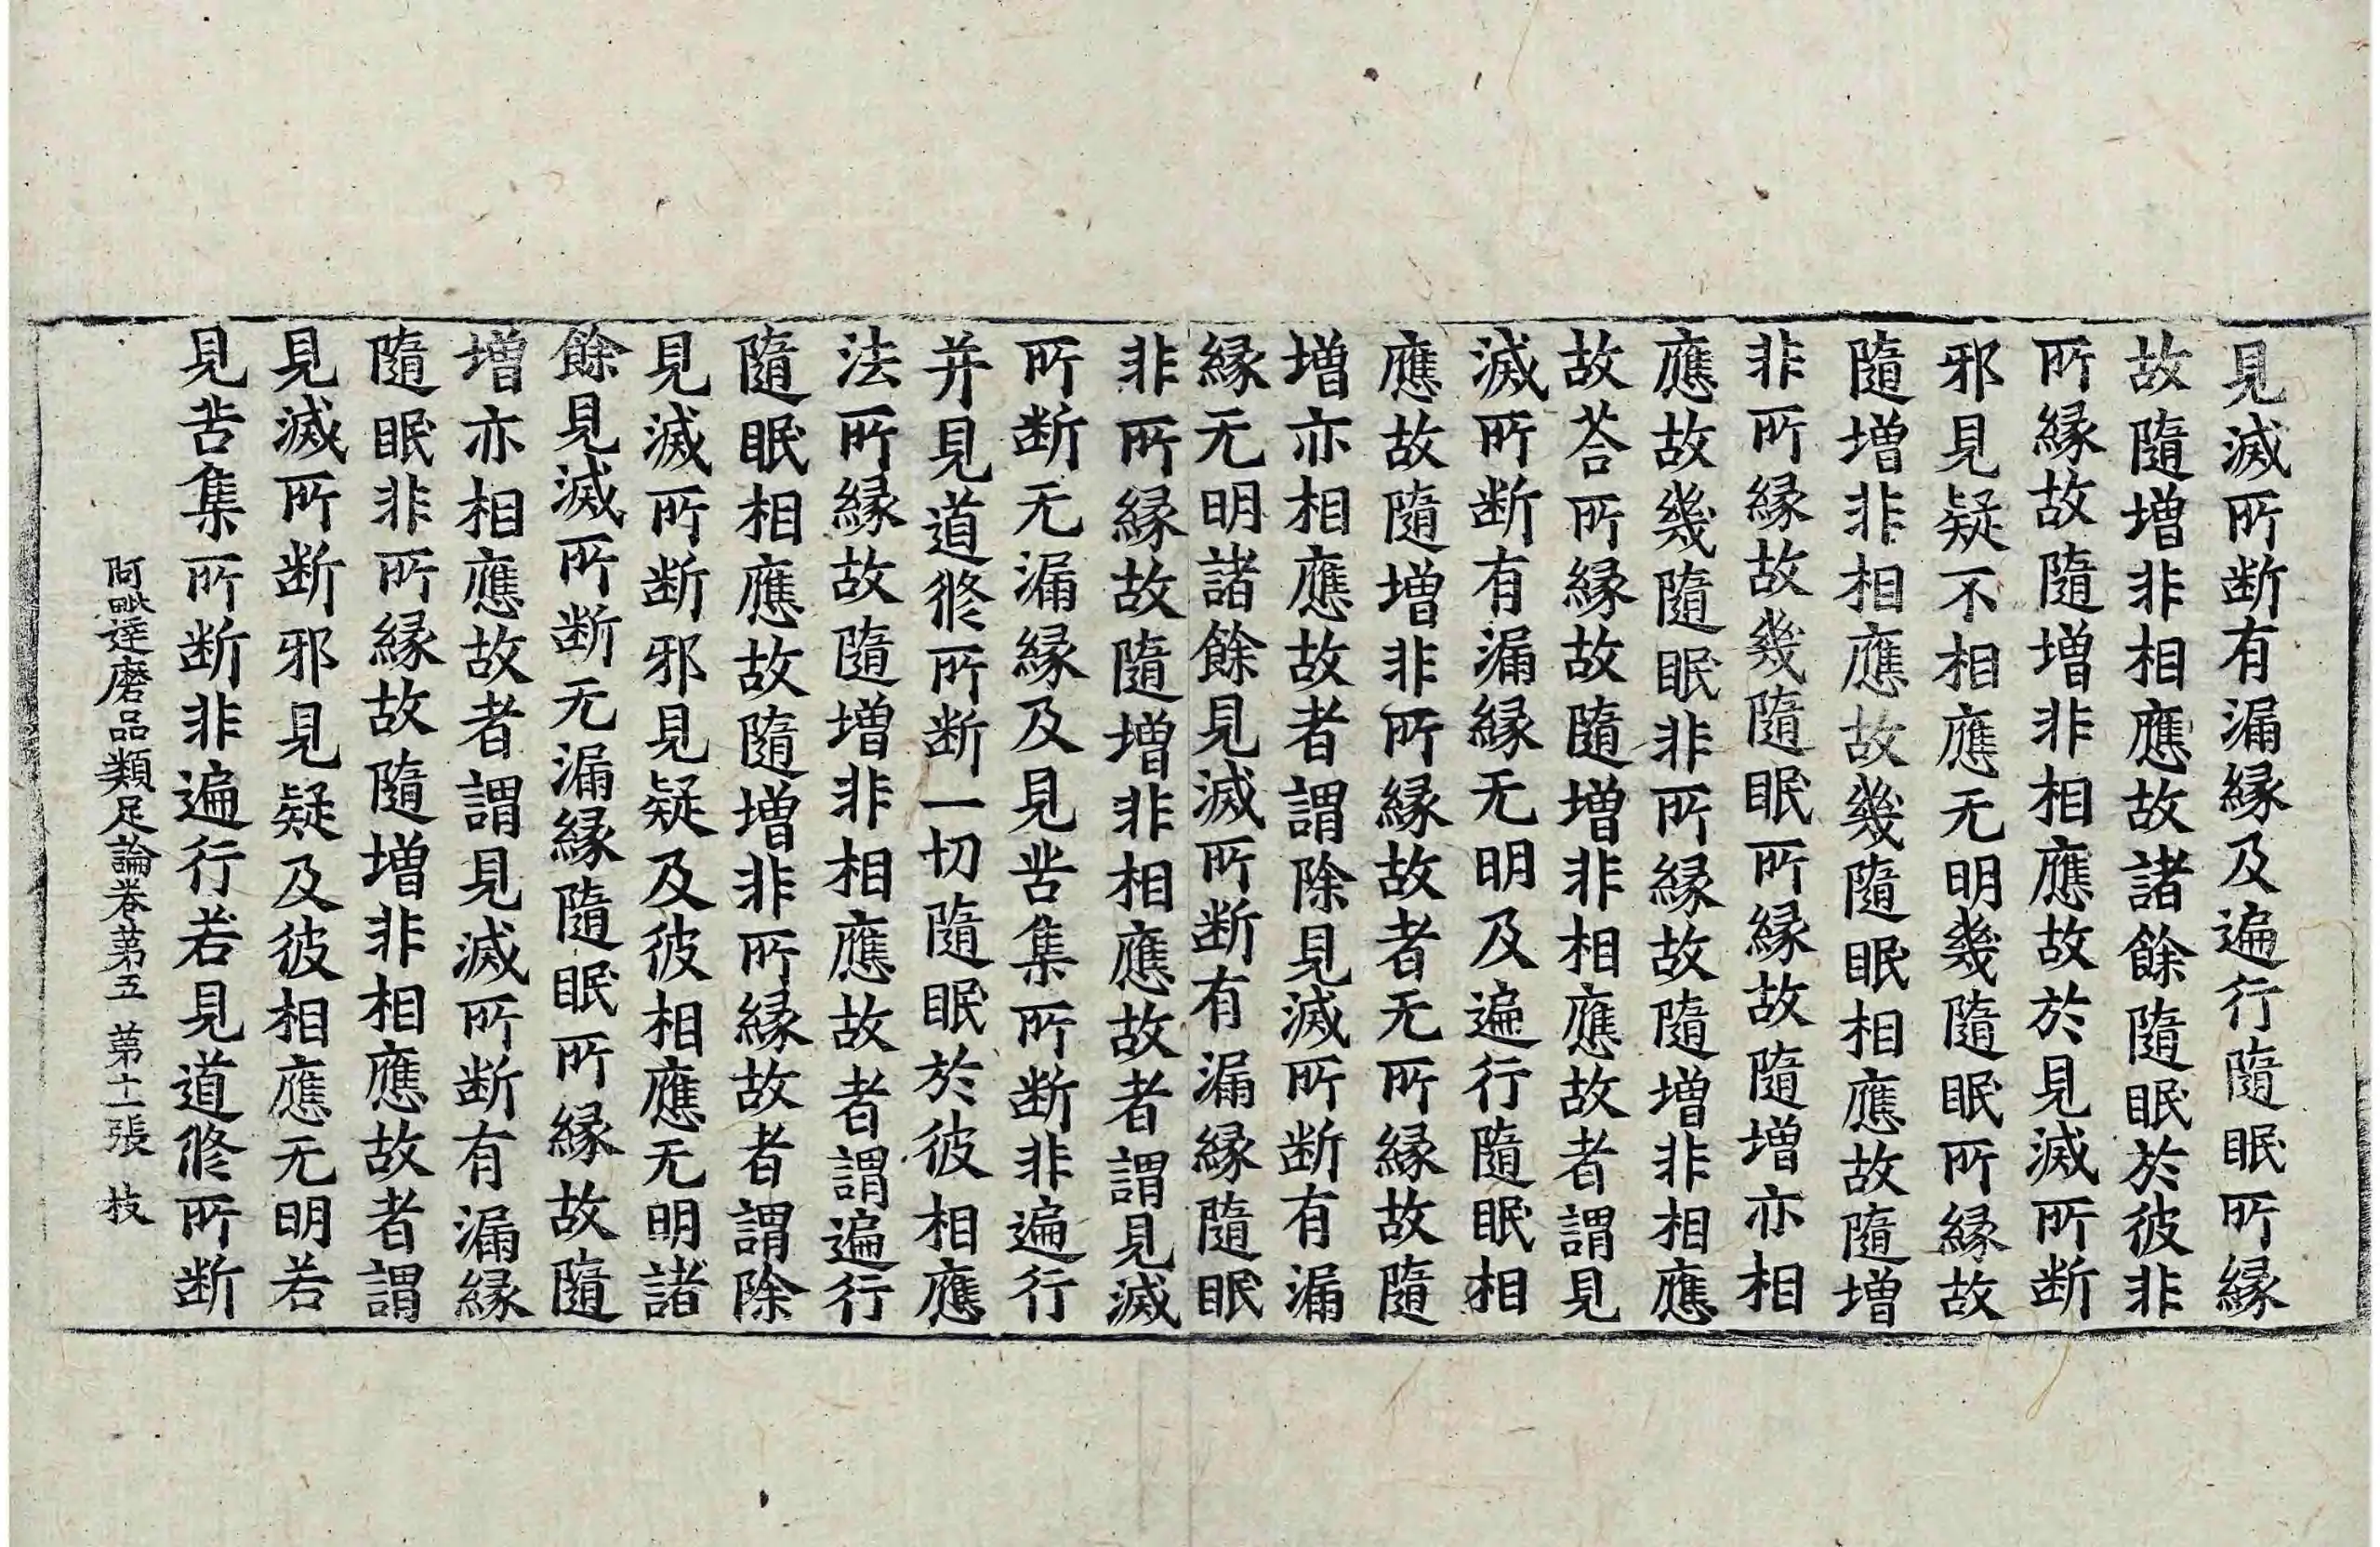 見滅所断有漏縁及遍行隨眠所縁
故隨增非相應故諸餘隨眠於彼非
所縁故隨增非相應故於見滅所断
邪見疑不相應无明幾隨眠所縁故
隨增非相應故幾隨眠相應故隨增
非所縁故幾隨眠所縁故隨增亦相
應故幾隨眠非所縁故隨增非相應
故荅所縁故隨增非相應故者謂見
滅所断有漏縁无明及遍行隨眠相
應故隨增非所縁故者无所縁故隨
增亦相應故者謂除見滅所断有漏
縁无明諸餘見滅所断有漏縁隨眠
非所縁故隨增非相應故者謂見滅
所断无漏縁及見苦集所断非遍行
并見道修所断一切隨眠於彼相應
法所縁故隨增非相應故者謂遍行
隨眠相應故隨增非所縁故者謂除
見滅所断邪見疑及彼相應无明諸
餘見滅所断无漏縁隨眠所縁故隨
增亦相應故者謂見滅所断有漏縁
隨眠非所縁故隨增非相應故者謂
見滅所断邪見疑及彼相應无明若
見苦集所断非遍行若見道修所断
阿毗達磨品類足論卷苐五 苐十一張 技